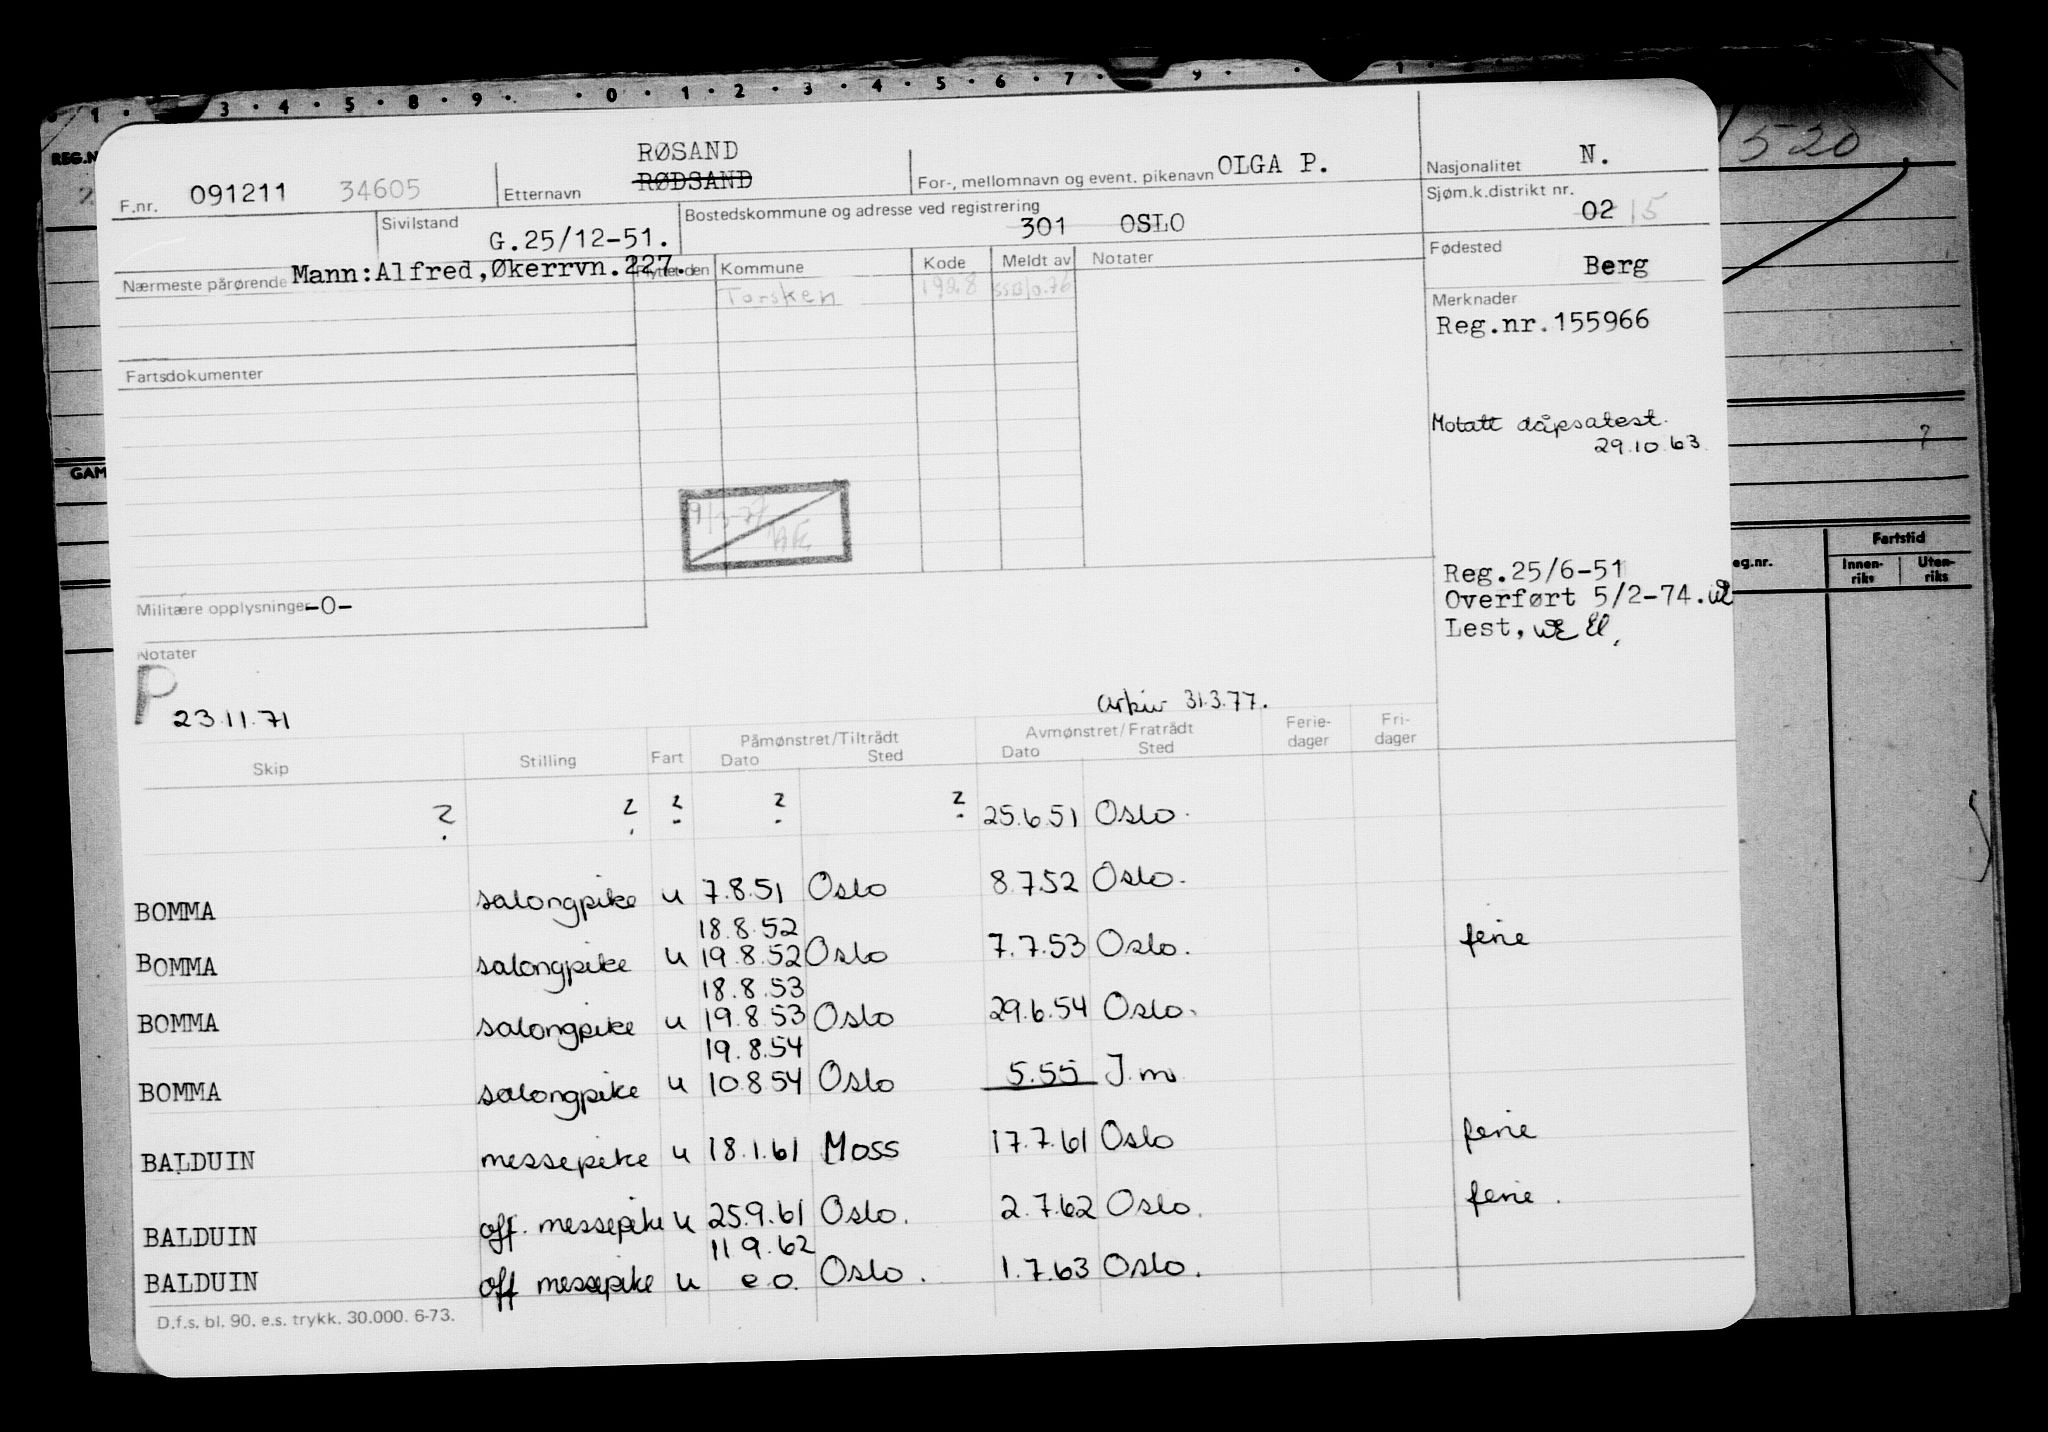 3 4 5 8 9 0 1 2 3 4 5 6 7 9 1
REG.N
520
RØSAND
F.nr. 091211 34605 Etternavn RØDSAND For-, mellomnavn og event. pikenavn OLGA P. Nasjonalitet N.
Sjøm.k.distrikt nr. 02 15
Sivilstand G.25/12-51. Bostedskommune og adresse ved registrering 301 OSLO
Fødested Berg
Nærmeste pårørende Mann:Alfred,Økerrvn.227. Flyttet den Kommune Kode Meldt av Notater
Torsken 1928 SSB/0.76
Merknader
Reg.nr.155966
Fartsdokumenter
Motatt dåpsatest.
29.10.63.
GAM
?
Fartstid
eg.nr. Innen-riks Uten-riks
Reg.25/6-51
Overført 5/2-74.
Lest,
Militære opplysninger -0-
Notater
P 23.11.71
Arkiv 31.3.77.
Påmønstret/Tiltrådt Avmønstret/Fratrådt Ferie-dager Fri-dager
Skip Stilling Fart Dato Sted Dato Sted
? ? ? ? ? 25.6.51 Oslo.
BOMMA salongpike u 7.8.51 Oslo 8.7.52 Oslo.
18.8.52
BOMMA salongpike u 19.8.52 Oslo 7.7.53 Oslo. ferie
18.8.53
BOMMA salongpike u 19.8.53 Oslo 29.6.54 Oslo.
19.8.54
BOMMA salongpike u 10.8.54 Oslo 5.55 J.m.
BALDUIN messepike u 18.1.61 Moss 17.7.61 Oslo ferie
BALDUIN off. messepike u 25.9.61 Oslo. 2.7.62 Oslo. ferie.
11.9.62
BALDUIN off messepike u e.o. Oslo. 1.7.63 Oslo.
D.f.s. bl. 90. e.s. trykk. 30.000. 6-73.